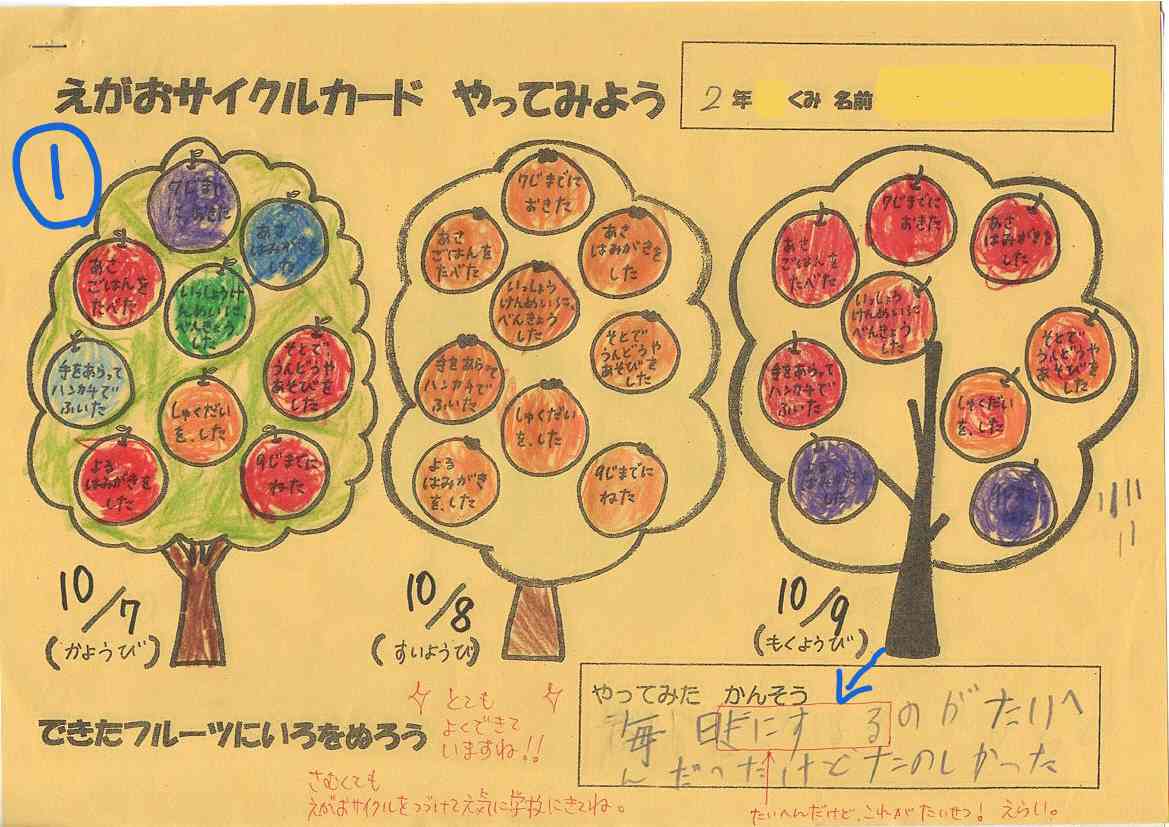 えがおサイクルカード やってみよう
2年 くみ 名前
1
7じまでに
おきた
あさ
はみがきを
した
あさ
ごはんを
たべた
いっしょうけ
んめいに、
べんきょう
した
手をあらって
ハンカチで
ふいた
そとで、
うんどうや
あそびを
した
しゅくだい
を、した
よる
はみがきを
した
9じまでに
ねた
10/7
(かようび)
7じまでに
おきた
あさ
ごはんを
たべた
あさ
はみがきを
した
いっしょう
けんめいに、
べんきょう
した
手をあらって
ハンカチで
ふいた
そとで、
うんどうや
あそびを
した
しゅくだい
を、した
よる
はみがき
を、した
9じまでに
ねた
10/8
(すいようび)
7じまでに
おきた
あさ
ごはんを
たべた
あさ
はみがきを
した
いっしょう
けんめいに
べんきょう
した
手をあらって
ハンカチで
ふいた
そとで、
うんどうや
あそびを
した
しゅくだい
を、した
よる
はみがき
した
10/9
(もくようび)
できたフルーツにいろをぬろう
とても
よくできて
いますね!!
さむくても
えがおサイクルをつづけて元気に学校にきてね。
やってみた かんそう
毎日にするのがたいへ
んだったけどたのしかった
たいへんだけど、これがたいせつ! えらい。